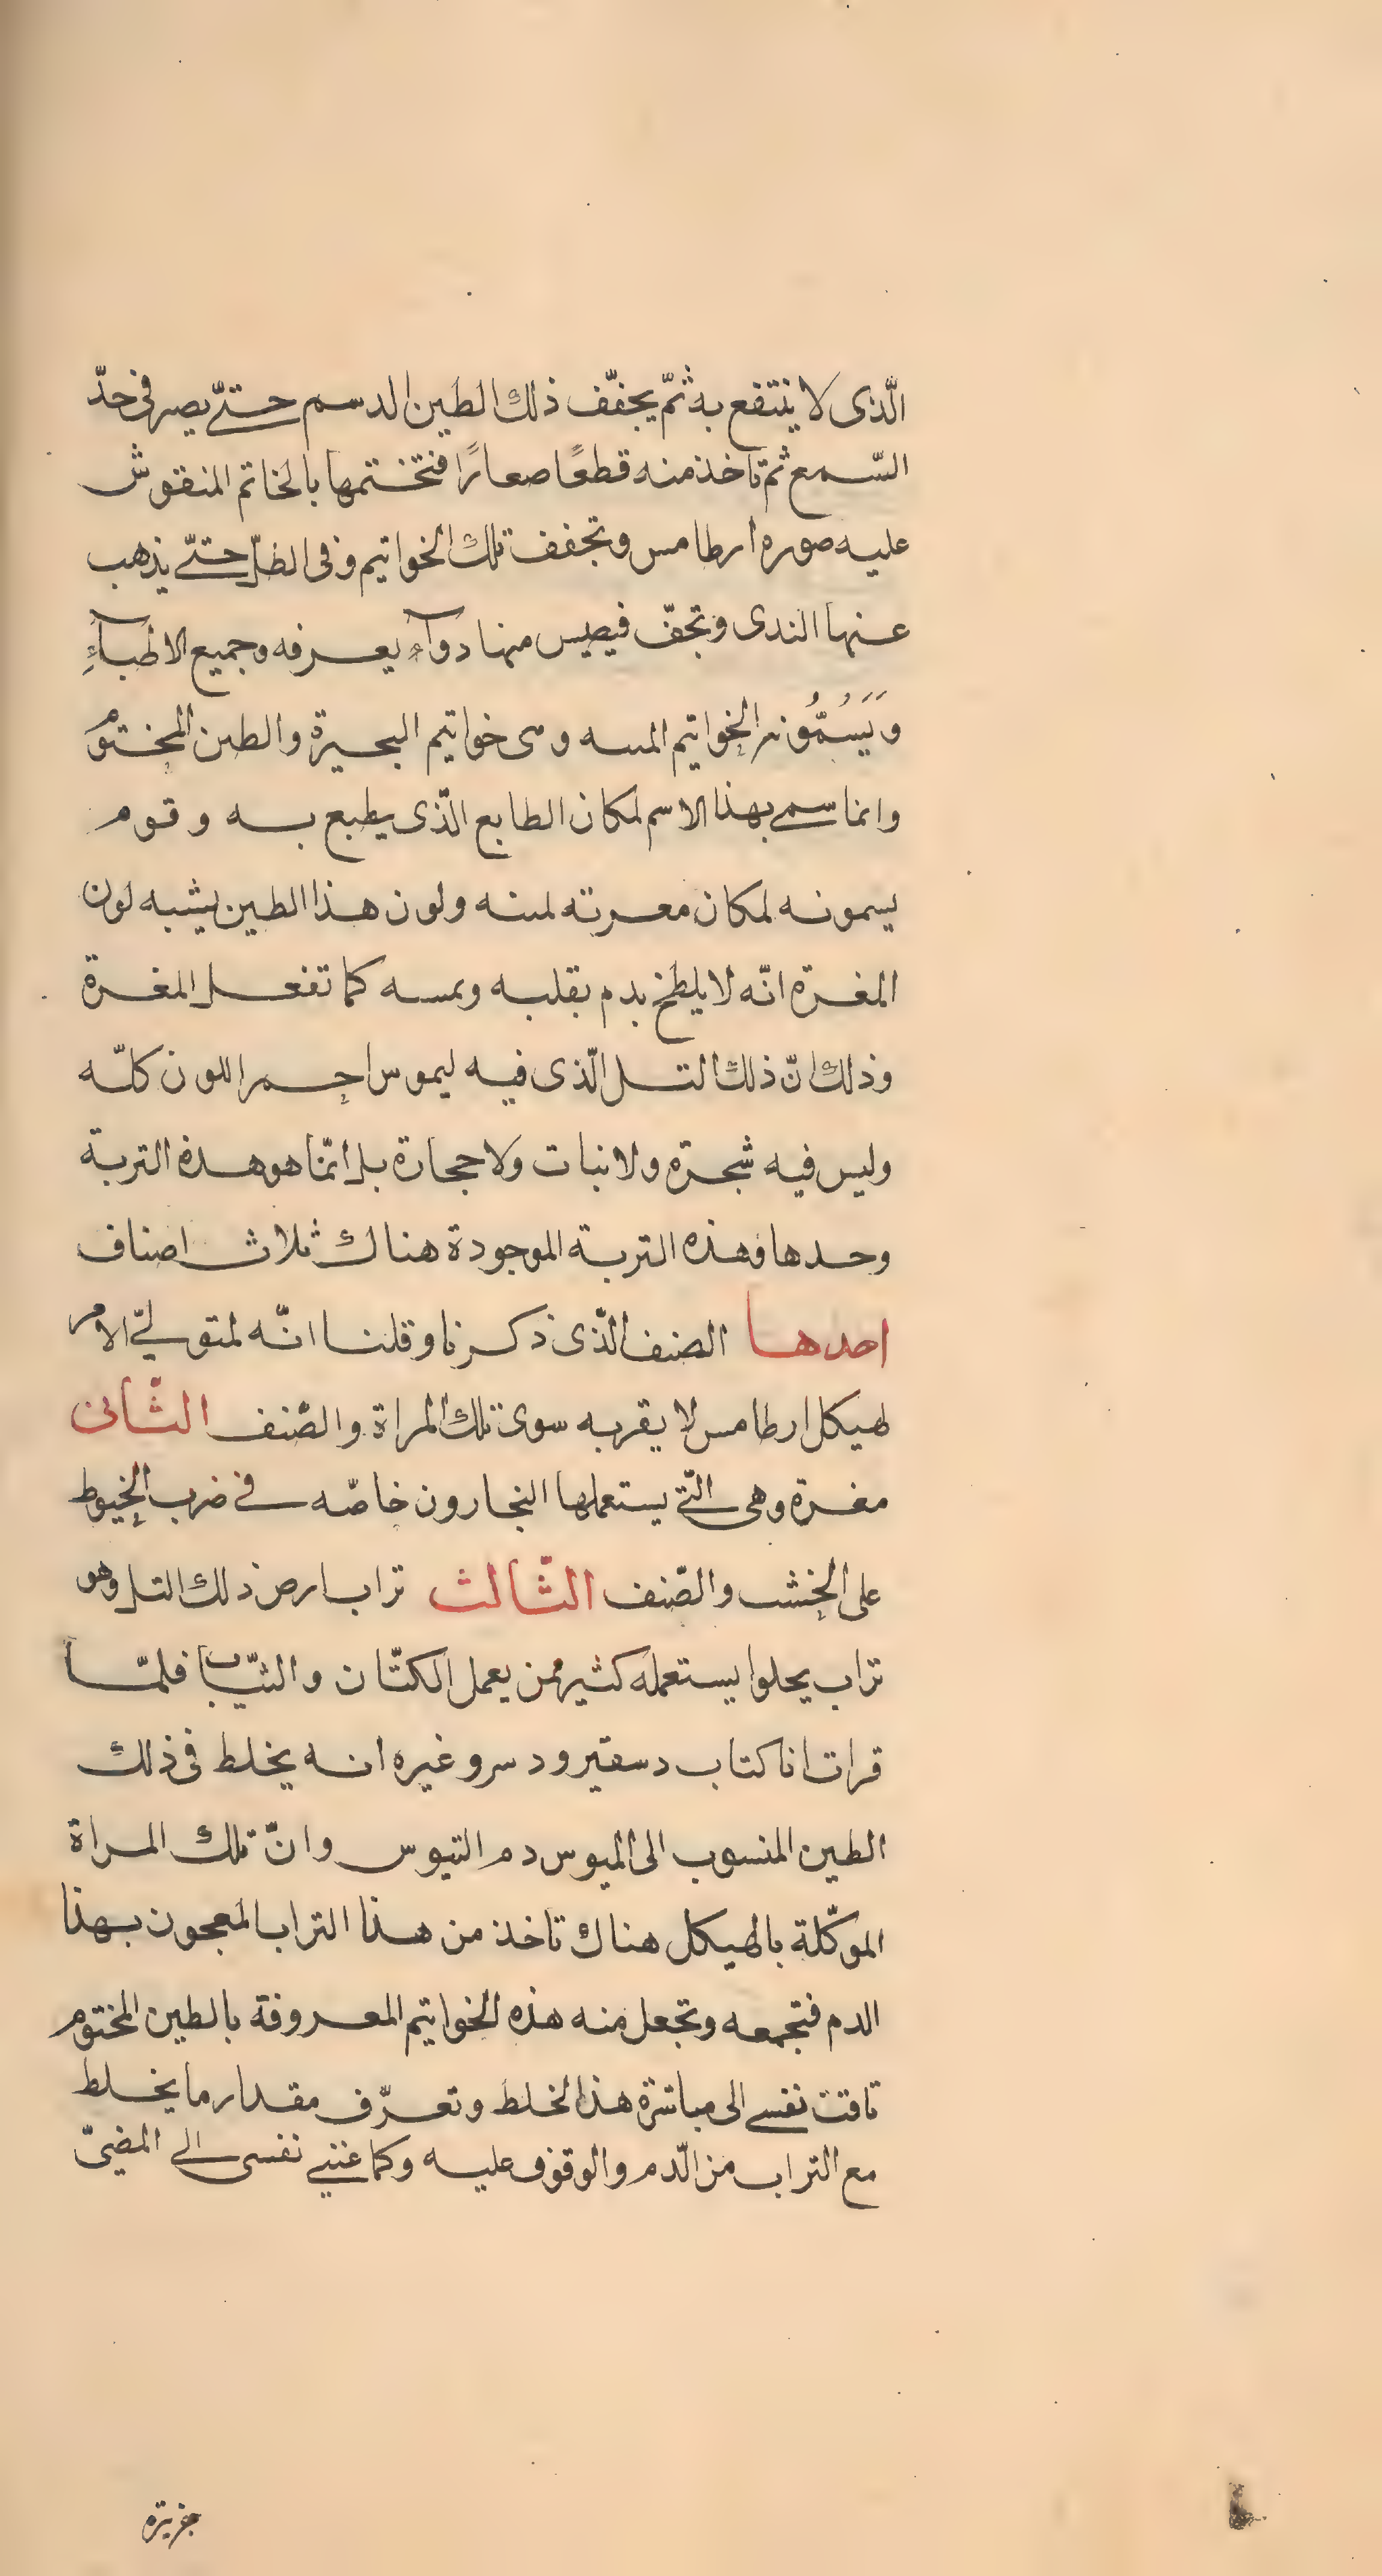 الّذى لا ينتفع به ثمّ يجفّف ذلك الطين الدسم حتىّ يصير فى حدّ
السّمع ثم تاخذ منه قطعًا صعارًا فتختمها بالخاتم المنقوش
عليه صوره ارطامس وتجفف تلك الخواتيم وفى الظلّ حتىّ يذهب
عنها الندى وتجفّ فيصير منها دوآء يعرفه وجميع الاطبآءِ
وَيَسُمُّون الخواتيم وهى خواتيم البحيرة والطين المختوم
وانما سمى بهذا الاسم لمكان الطابع الّذى يطبع به وقوم
يسمونه لمكان معرته لمنه ولون هذا الطين يشبه لون
المغرة انّه لا يلطخ بدم بقلبه ويمسه كما تفعل المغرة
وذلك انّ ذلك التل الّذى فيه ليموس احمر اللون كلّه
وليس فيه شجرة ولا نبات ولا حجارة بل انّما هو هذه التربة
وحدها فهذه التربة الموجودة هناك ثلاث اصناف
احدها الصنف الّذى ذكرنا وقلنا انّه لمتولىّ الامر
لهيكل ارطامس لا يقربه سوى تلك المراة والصّنف الثّانى
مغرة وهى التّى يستعملها النجارون خاصّه فى ضرب الخيوط
على الخشب والصّنف الثّالث تراب ارض ذلك التل وهو
تراب يجلوا يستعمله كثير ممن يعمل الكتّان والثيّاب فلمّا
قرات انا كتاب دسقيرودس وغيره انه يخلط فى ذلك
الطين المنسوب الى لميوس دم التيوس وانّ تلك المراة
الموكّلة بالهيكل هناك تاخذ من هذا التراب المعجون بهذا
الدم فتجمعه وتجعل منه هذه الخواتيم المعروفة بالطين المختوم
تاقت نفسى الى مباشرة هذا الخلط وتعرّف مقدار ما يخلط
مع التراب من الّدم والوقوف عليه وكما غنيى نفسى الى المضىّ
جزيرة